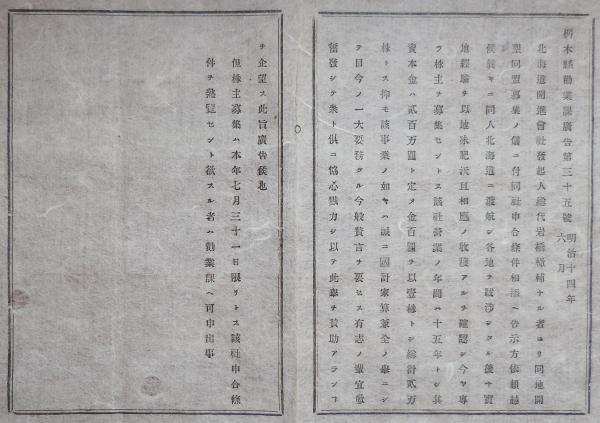 栃木縣勸業課廣告第三十五號 明治十四年六月
北海道開進會社發起人總代岩橋轍輔ナル者ヨリ同地開
墾同盟募集ノ儀ニ付同社申合條件相添ヘ告示方依頼越
候畢キニ同人北海道ニ渡航シ各地ヲ跋渉シタル後ヰ實
地經驗ヲ以地味肥沃且相應ノ收穫アルヲ確認シ今ヤ專
ラ株主ヲ募集セントス該社營業ノ年間ハ十五年トシ其
資本金ハ貳百万圓ト定メ金百圓ヲ以壹株トシ總計貳万
株トス抑モ該事業ノ如キハ誠ニ國計家算兼全ノ擧ニシ
テ目今ノ一大要務タル今般贅言ヲ要セス有志ノ輩宜敷
奮發シテ衆ト供ニ協心戮力シ以テ此擧ヲ賛助アランコ
ヲ企望ス此旨廣告候也
但株主募集ハ本年七月三十一日限リトス該社申合條
件ヲ熟覽セント欲スル者ハ勸業課ヘ可申出事